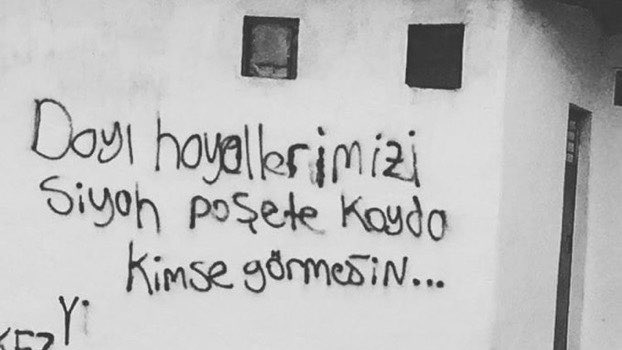 Dayı hayallerimizi
Siyah poşete Koyda
Kimse görmesin...
Yi
KEZ